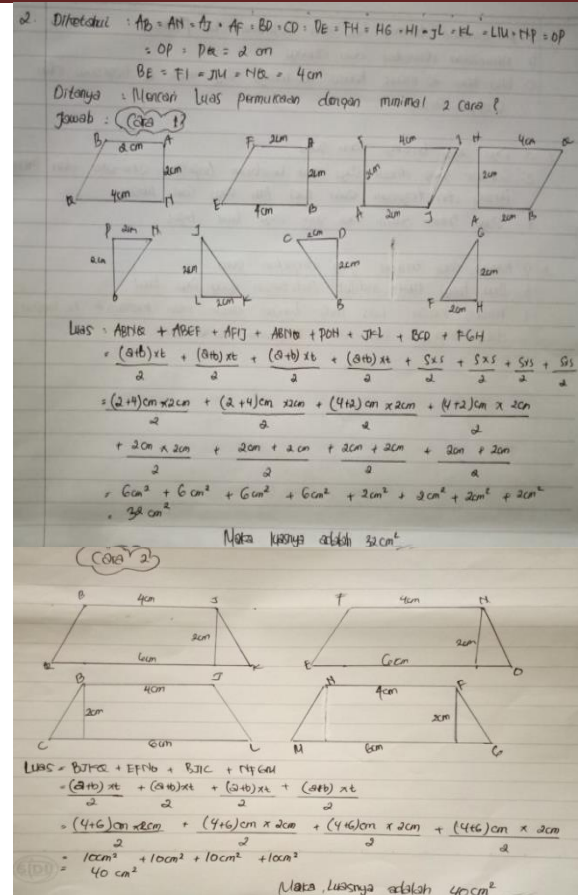 2. Diketahui : AB = AN = AJ = AF = BD = CD = DE = FH = HG = HI = JL = KL = LM = NP = OP
= OP = PQ = 2 cm
BE = FI = JM = NQ = 4cm
Ditanya : Mencari luas permukaan dengan minimal 2 cara?
Jawab : Cara 1
B A F A F I H Q
2cm 2cm 4cm 4cm
2cm 2cm 2cm 2cm
4cm 4cm 2cm 2cm
Q N E B A J A B
P 2cm N J C 2cm D G
2cm 2cm 2cm 2cm
O L 2cm K B F 2cm H
Luas : ABNQ + ABEF + AFIJ + ABNQ + PON + JKL + BCD + FGH
= (a+b)xt/2 + (a+b)xt/2 + (a+b)xt/2 + (a+b)xt/2 + sxs/2 + sxs/2 + sxs/2 + sxs/2
= (2+4)cm x2cm/2 + (2+4)cm x2cm/2 + (4+2)cm x 2cm/2 + (4+2)cm x 2cm/2
+ 2cm x 2cm/2 + 2cm + 2cm/2 + 2cm + 2cm/2 + 2cm + 2cm/2
= 6cm² + 6cm² + 6cm² + 6cm² + 2cm² + 2cm² + 2cm² + 2cm²
= 32 cm²
Maka luasnya adalah 32cm²
Cara 2
B 4cm J F 4cm N
2cm 2cm
Q 6cm K E 6cm O
B 4cm J N 4cm F
2cm 2cm
C 6cm L M 6cm G
Luas = BJKQ + EFNO + BJLC + NFGM
= (a+b)xt/2 + (a+b)xt/2 + (a+b)xt/2 + (a+b)xt/2
= (4+6)cm x2cm/2 + (4+6)cm x 2cm/2 + (4+6)cm x 2cm/2 + (4+6)cm x 2cm/2
= 10cm² + 10cm² + 10cm² + 10cm²
= 40 cm²
Maka, luasnya adalah 40cm²